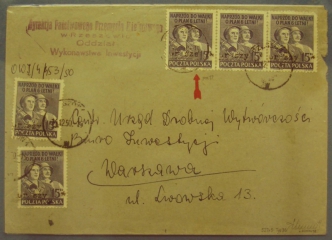 Oddział
Wykonawstwa Inwestycji
0407/4/153/50
NAPRZÓD DO WALKI
O PLAN 6 LETNI
15
POCZTA POLSKA
NAPRZÓD DO WALKI
O PLAN 6 LETNI
15
POCZTA POLSKA
NAPRZÓD DO WALKI
O PLAN 6 LETNI
15
POCZTA POLSKA
NAPRZÓD DO WALKI
O PLAN 6 LETNI
15
POCZTA POLSKA
NAPRZÓD DO WALKI
O PLAN 6 LETNI
15
POCZTA POLSKA
Urząd Drobnej Wytwórczości
Biuro Inwestycji
Warszawa
ul. Lwowska 13.